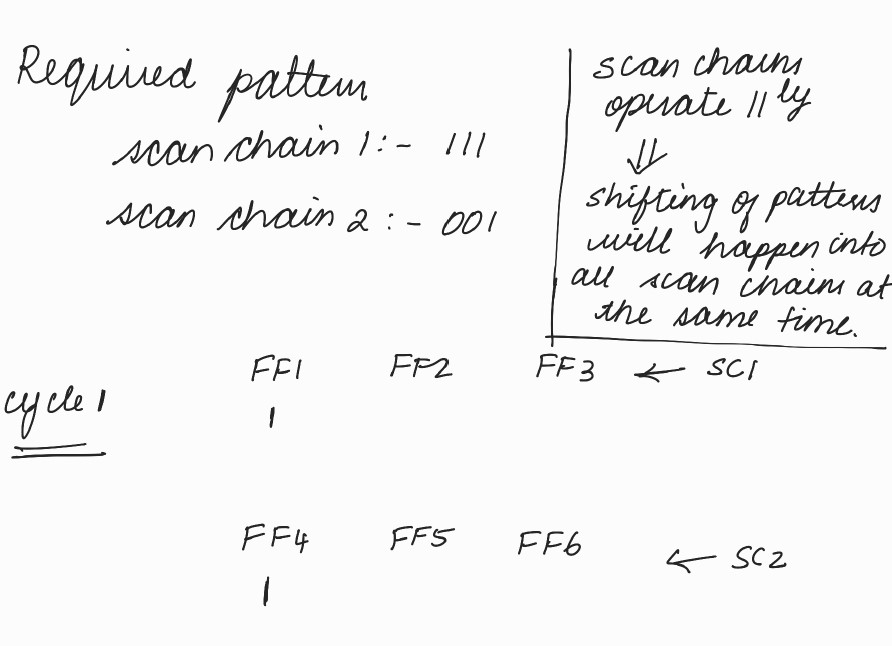 Required pattern
scan chain 1:- 111
scan chain 2:- 001
scan chains
operate || ly
⇓
shifting of patterns
will happen into
all scan chains at
the same time.
FF1 FF2 FF3 ← SC1
cycle 1
1
FF4 FF5 FF6 ← SC2
1